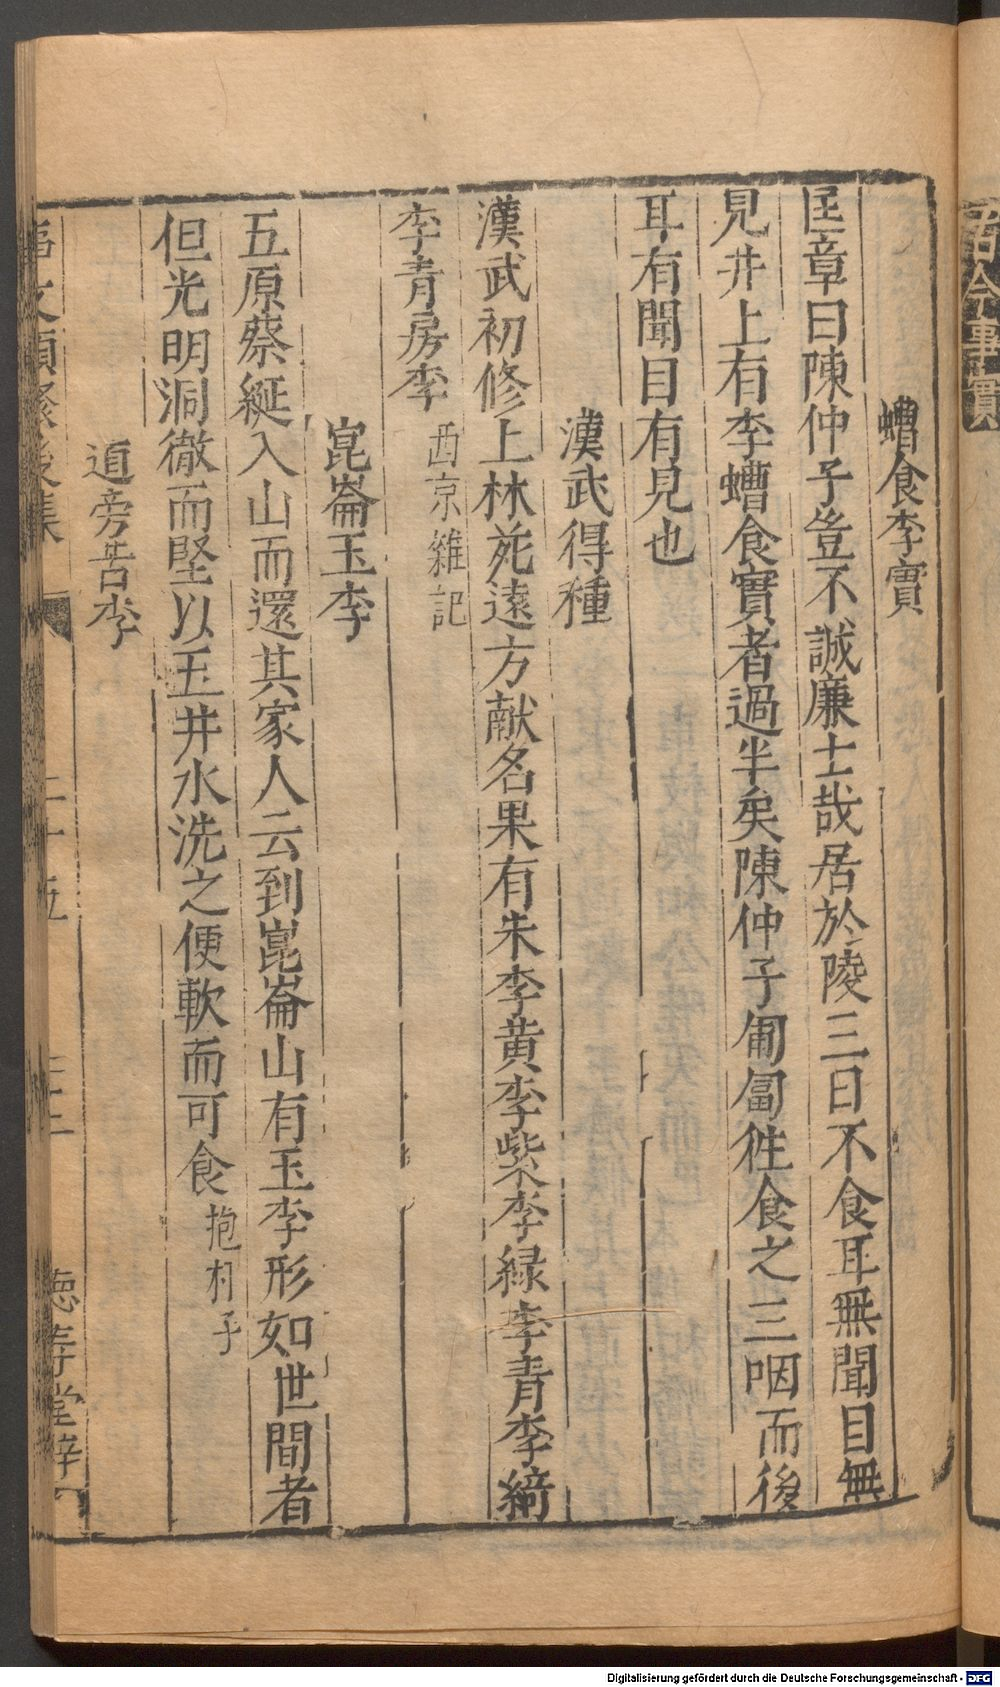 螬食李實
匡章曰陳仲子豈不誠廉士哉居於陵三日不食耳無聞目無
見井上有李螬食實者過半矣陳仲子匍匐徃食之三咽而後
耳有聞目有見也
漢武得種
漢武初修上林苑遠方献名果有朱李黄李紫李緑李青李綺
李青房李
西京雜記
崑崙玉李
五原蔡綖入山而還其家人云到崑崙山有玉李形如世間者
但光明洞徹而堅以玉井水洗之便軟而可食抱朴子
道旁苦李
後集
二十五
德壽堂梓
古今事實
Digitalisierung gefördert durch die Deutsche Forschungsgemeinschaft - DFG